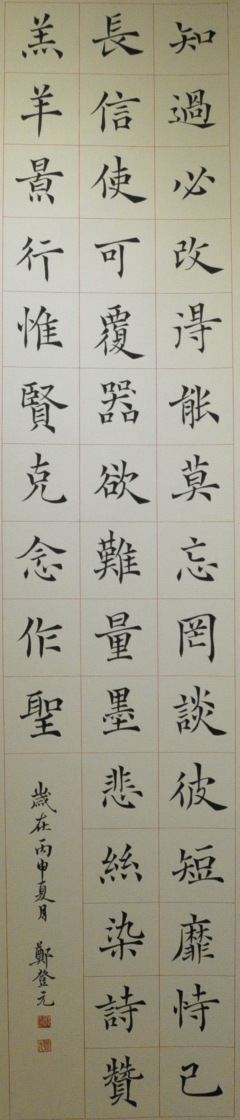 知過必改得能莫忘罔談彼短靡恃己
長信使可覆器欲難量墨悲絲染詩贊
羔羊景行惟賢克念作聖
歲在丙申夏月 鄭登元